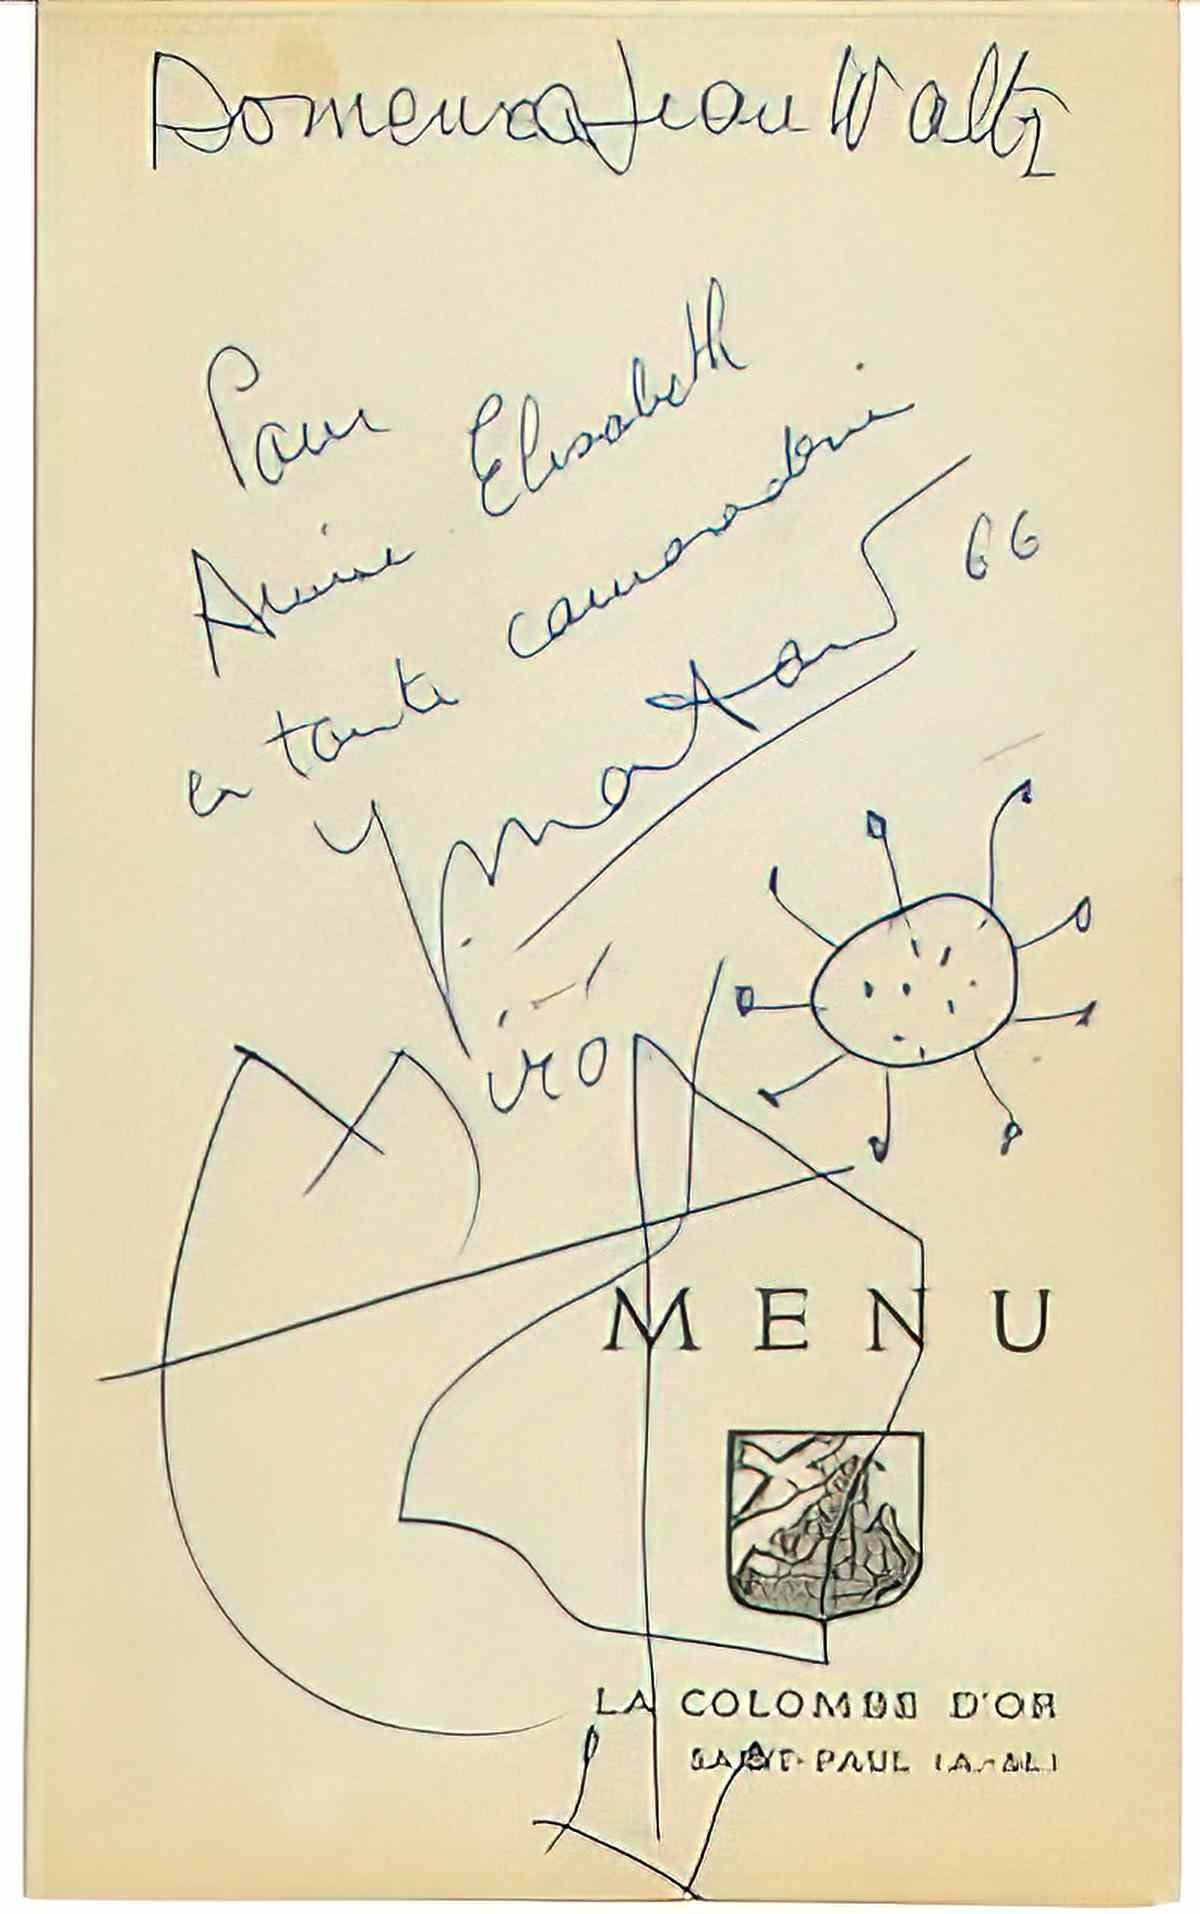 Domenica Jean Walter
Pour
Anne Elisabeth
en toute camaraderie
Y. montand 66
Miró
MENU
LA COLOMBE D'OR
SAINT-PAUL (A.-M.)